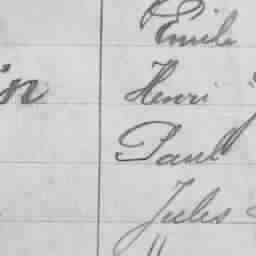 Emile
Henri
Paul
Jules
"